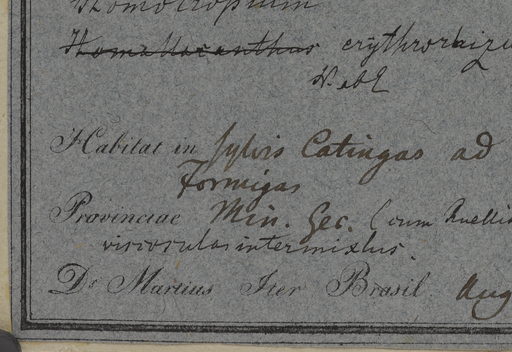 Homotropium
Homallacanthus erythrorhizu
N. ab E
Habitat in sylvis Catingas ad
Formigas
Provinciae Min. Ger. (cum Ruelli
viscosula intermixtus.
Dr Martius Iter Brasil Aug